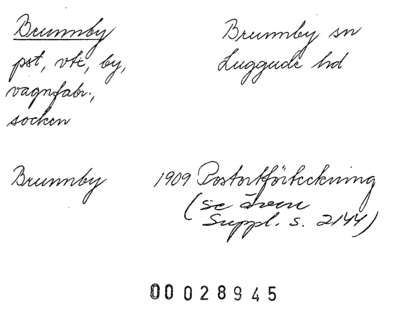 Brunnby
Brunnby sn
pst, vtc, by,
Luggude hd
vagnfabr.,
socken
Brunnby
1909 Postortförteckning
(se även
Suppl. s. 2144)
00028945